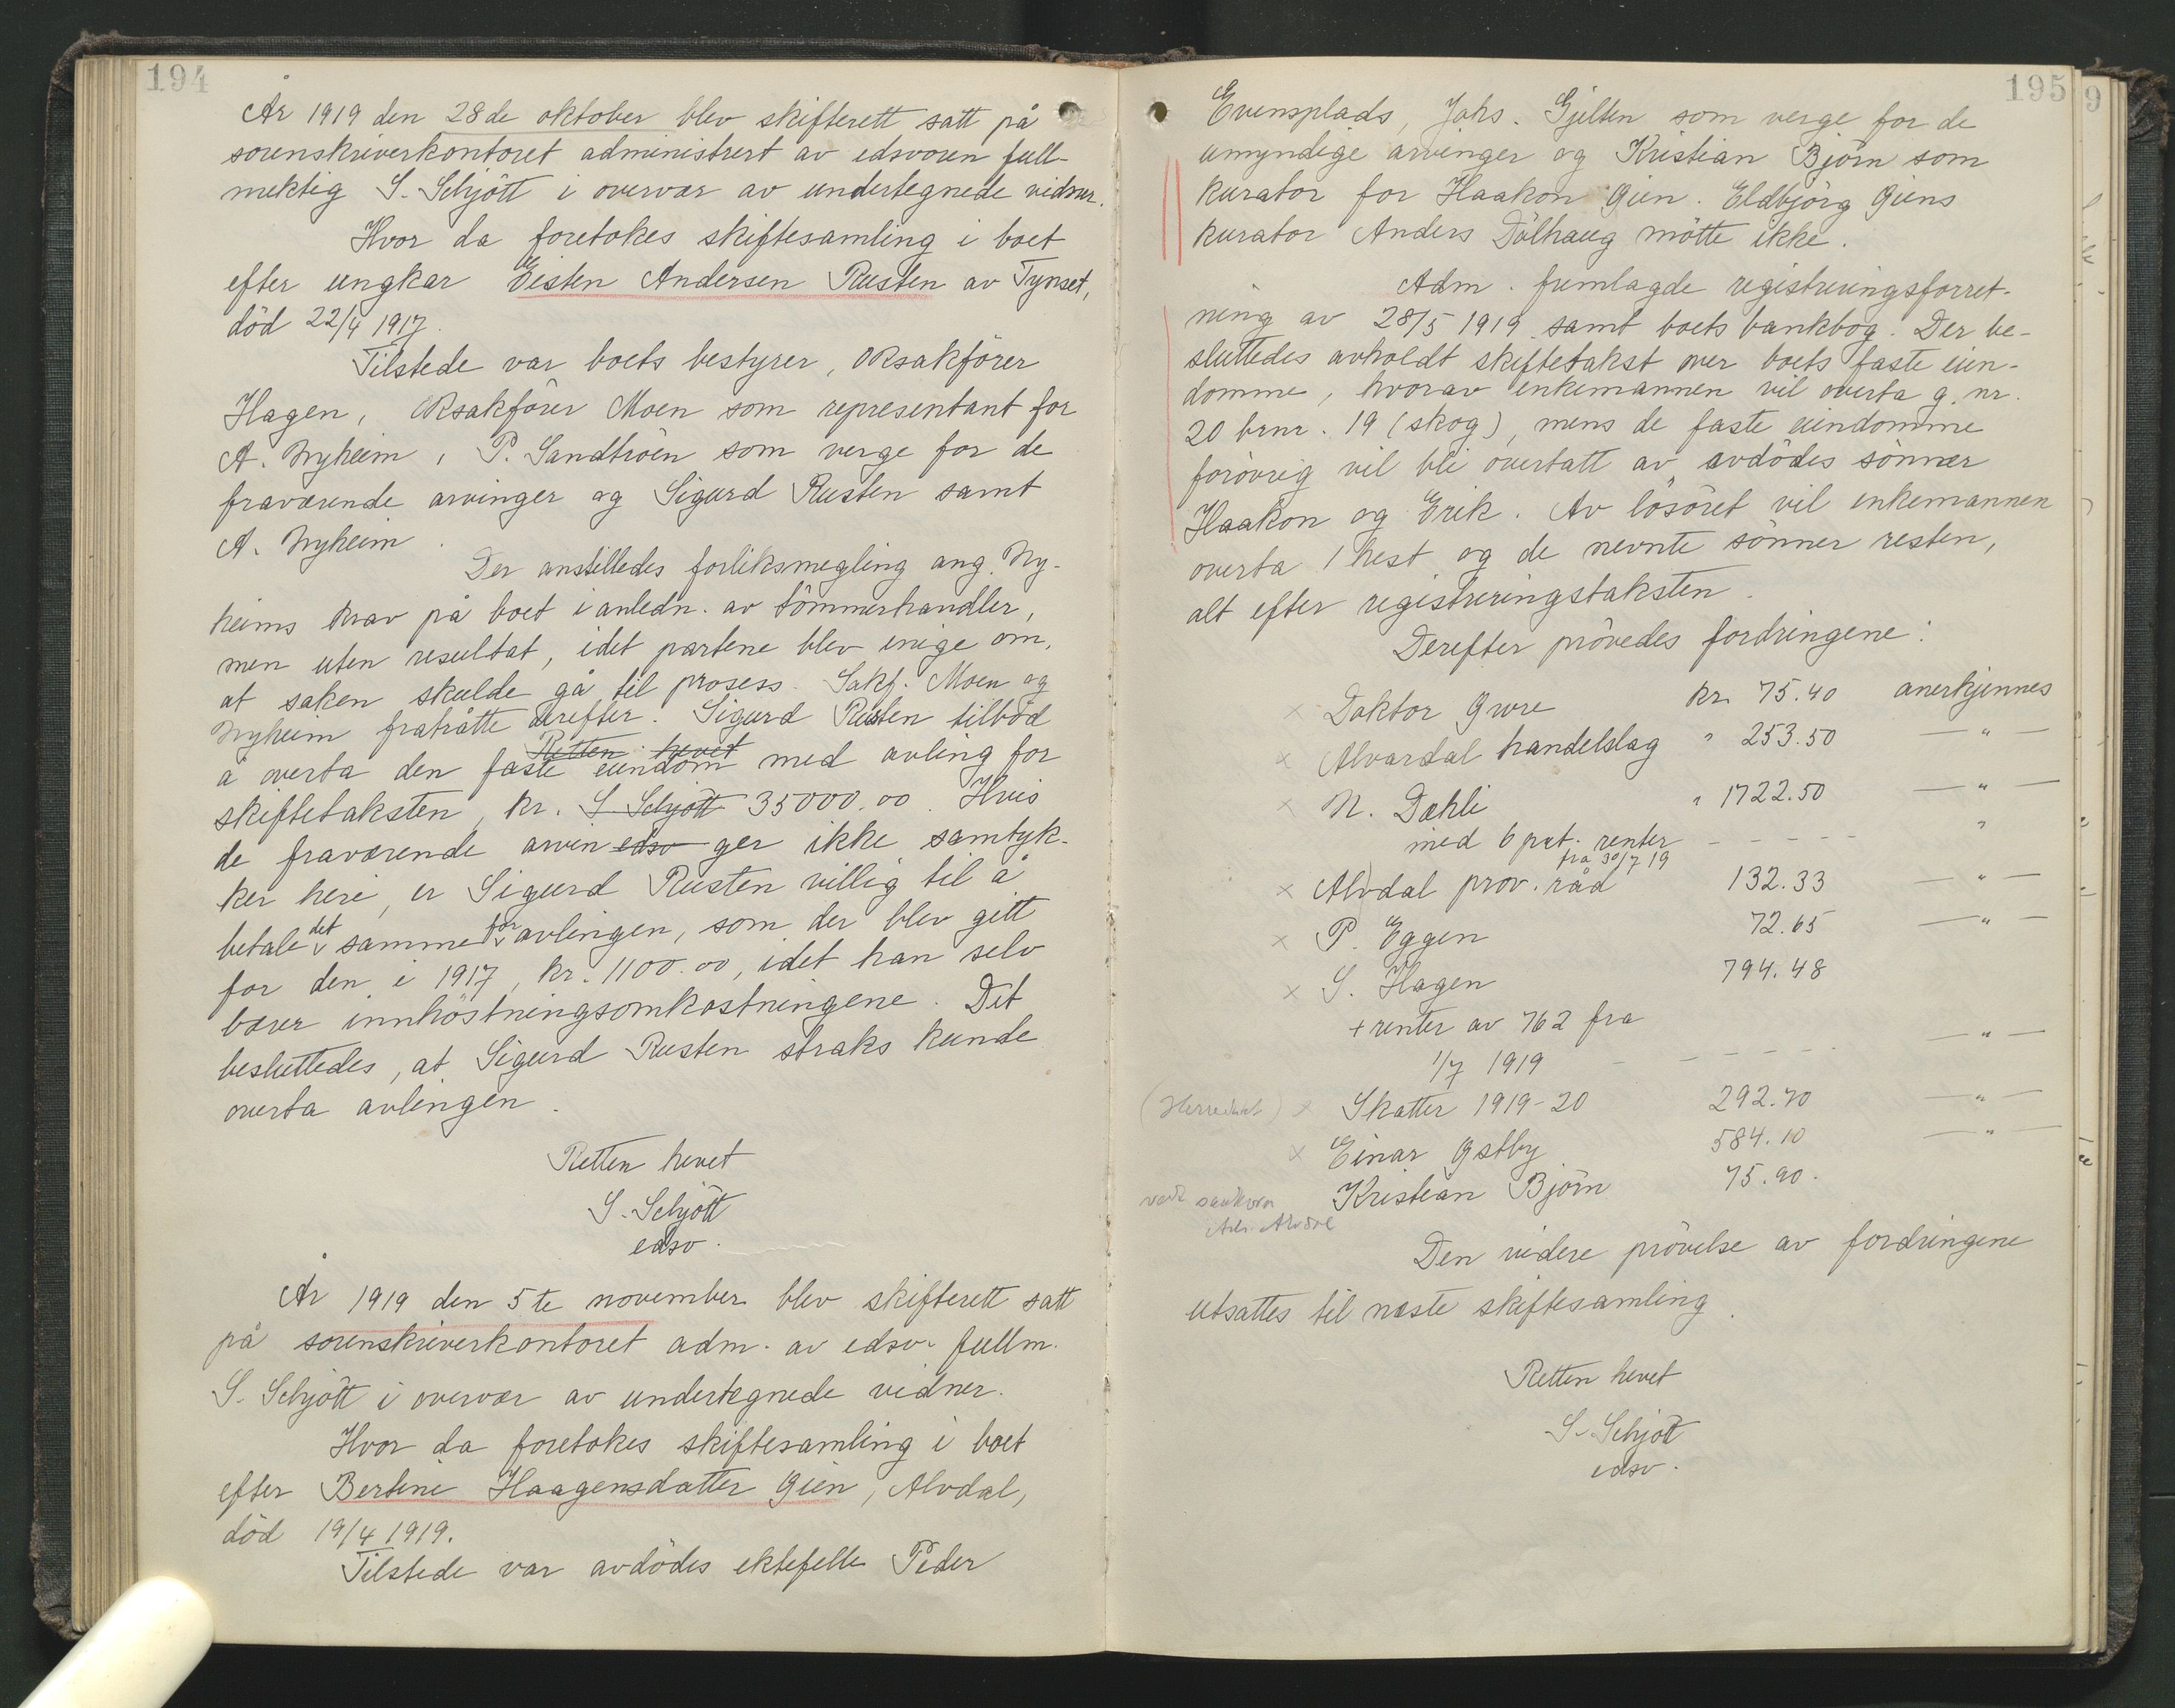 194
År 1919 den 28de oktober blev skifterett satt på
sorenskriverkontoret administrert av edsvoren full-
mektig S. Schjött i overvær av undertegnede vidner.
Hvor da foretokes skiftesamling i boet
efter ungkar Eisten Andersen Rusten av Tynset,
död 22/4 1917.
Tilstede var boets bestyrer, ORsakförer
Hagen, ORsakförer Moen som representant for
A. Nyheim, P. Sandtröen som verge for de
fraværende arvinger og Sigurd Rusten samt
A. Nyheim.
Der anstilledes forliksmegling ang. Ny-
heims krav på boet i anledn. av tömmerhandler,
men uten resultat, idet partene blev enige om,
at saken skulde gå til prosess. Sakf. Moen og
Nyheim fratråtte derefter. Sigurd Rusten tilböd
Retten hevet
å overta den faste eiendom med avling for
skiftetaksten, kr. S Schjött 35000.00. Hvis
de fraværende arvin edsv ger ikke samtyk-
ker heri, er Sigurd Rusten villig til å
betale det samme for avlingen, som der blev gitt
for den i 1917, kr. 1100.00, idet han selv
bærer innhöstningsomkostningene. Det
besluttedes, at Sigurd Rusten straks kunde
overta avlingen.
Retten hevet
S. Schjött
edsv.
År 1919 den 5te november blev skifterett satt
på sorenskriverkontoret adm. av edsv. fullm.
S. Schjött i overvær av undertegnede vidner.
Hvor da foretokes skiftesamling i boet
efter Bertine Haagensdatter Gien, Alvdal,
död 19/4 1919.
Tilstede var avdödes ektefelle Peder
195
9
Evensplads, Johs. Gjelten som verge for de
umyndige arvinger og Kristian Björn som
kurator for Haakon Gien. Eldbjörg Giens
kurator Anders Dölhaug mötte ikke.
Adm. fremlagde registreringsforret-
ning av 28/5 1919 samt boets bankbog. Der be-
sluttedes avholdt skiftetakst over boets faste eien-
domme, hvorav enkemannen vil overta g. nr.
20 brnr. 19 (skog), mens de faste eiendomme
forövrig vil bli overtatt av avdödes sönner
Haakon og Erik. Av lösöret vil enkemannen
overta 1 hest og de nevnte sönner resten,
alt efter registreringstaksten.
Derefter prövedes fordringene:
x Doktor Gwre kr. 75.40 anerkjennes
x Alvardal handelslag " 253.50 — " —
x N. Dæhli " 1722.50 — " —
med 6 pct. renter - - - - "
fra 30/7 19
x Alvdal prov. råd 132.33 — " —
x P. Eggen 72.65 — " —
x S. Hagen 794.48
+ renter av 762 fra
1/7 1919 - - - - - — " —
(Herredsk) x Skatter 1919-20 292.70 — " —
x Einar Gstby 584.10 — " —
Kristian Björn 75.90.
Den videre prövelse av fordringene
utsattes til næste skiftesamling.
Retten hevet
S. Schjött
edsv.